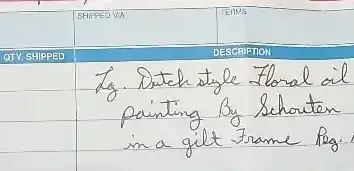 SHIPPED VIA
TERMS
QTY. SHIPPED
DESCRIPTION
Lg. Dutch style Floral oil
painting By Schouten
in a gilt Frame Reg.